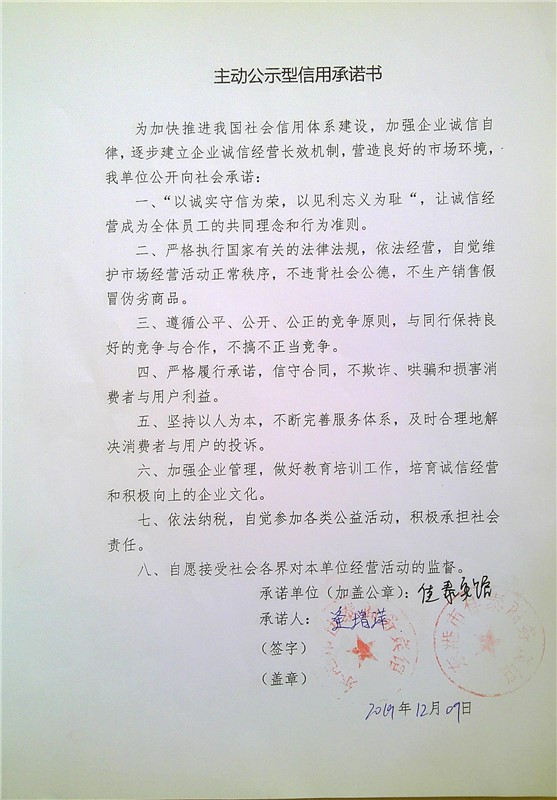 主动公示型信用承诺书
为加快推进我国社会信用体系建设，加强企业诚信自
律，逐步建立企业诚信经营长效机制，营造良好的市场环境，
我单位公开向社会承诺：
一、“以诚实守信为荣，以见利忘义为耻“，让诚信经
营成为全体员工的共同理念和行为准则。
二、严格执行国家有关的法律法规，依法经营，自觉维
护市场经营活动正常秩序，不违背社会公德，不生产销售假
冒伪劣商品。
三、遵循公平、公开、公正的竞争原则，与同行保持良
好的竞争与合作，不搞不正当竞争。
四、严格履行承诺，信守合同，不欺诈、哄骗和损害消
费者与用户利益。
五、坚持以人为本，不断完善服务体系，及时合理地解
决消费者与用户的投诉。
六、加强企业管理，做好教育培训工作，培育诚信经营
和积极向上的企业文化。
七、依法纳税，自觉参加各类公益活动，积极承担社会
责任。
八、自愿接受社会各界对本单位经营活动的监督。
承诺单位（加盖公章）：佳泰宾馆
承诺人：
（签字）
（盖章）
2019年12月09日